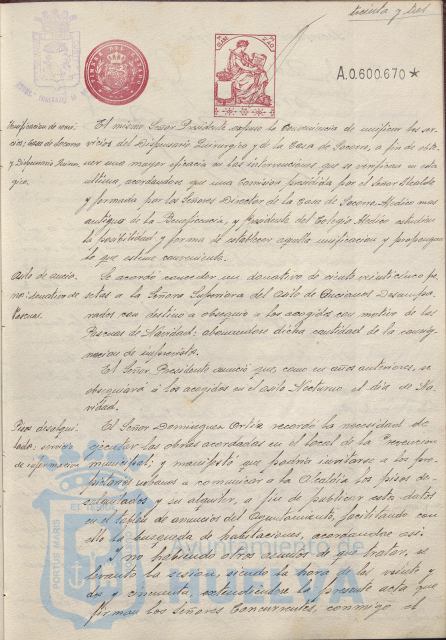 treinta y tres
A.0.600.670 *
Unificacion de servi-
cios; Casa de Socorro
y Dispensario Quirur-
gico.
El mismo Señor Presidente expuso la conveniencia de unificar los ser-
vicios del Dispensario Quirurgico y de la Casa de Socorro, a fin de obte-
ner una mayor eficacia en las intervenciones que se verifican en esta
ultima, acordandose que una Comision presidida por el Señor Alcalde
y formada por los Señores Director de la Casa de Socorro, Medico mas
antiguo de la Beneficencia, y Presidente del Colegio Medico estudien
la posibilidad y forma de establecer aquella unificacion y propongan
lo que estime conveniente.
Asilo de ancia-
nos: donativo de
Pascuas.
Se acordo conceder un donativo de ciento veinticinco pe-
setas a la Señora Superiora del Asilo de Ancianos Desampa-
rados con destino a obsequio a los acogidos con motivo de las
Pascuas de Navidad: abonandose dicha cantidad de la consig-
nacion de imprevistos.
El Señor Presidente anuncio que, como en años anteriores, se
obsequiará á los acogidos en el asilo Nocturno el dia de Na-
vidad.
Pisos desalqui-
lados: servicio
de informacion
El Señor Dominguez Ortiz recordó la necesidad de
ejecutar las obras acordadas en el local de la
municipal; y manifestó que podria invitarse a los pro-
pietarios urbanos a comunicar a la Alcaldia los pisos de-
salquilados y su alquiler, a fin de publicar estos datos
en el tablon de anuncios del Ayuntamiento, facilitando con
ello la busqueda de habitaciones, acordandose asi.
Y no habiendo otros asuntos de que tratar, se
levantó la sesion, siendo la hora de las veinte y
dos y cincuenta, extendiendose la presente acta que
firman los Señores Concurrentes, conmigo el
PORTUS MARIS
Ayuntamiento de
HUELVA